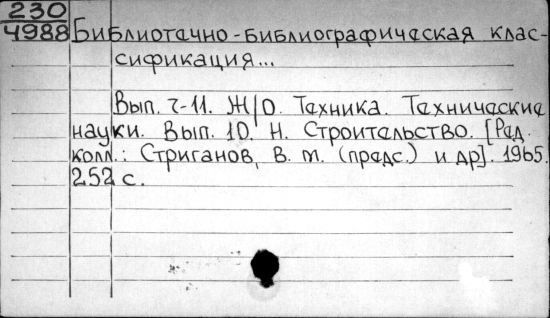 230
4988
Библиотечно-библиографическая клас-
сификация...
Вып. 7-11. Ж/О. Техника. Технические
науки. Вып. 10. Н. Строительство. [Ред.
колл.: Стриганов, В. М. (предс.) и др]. 1965.
252 с.